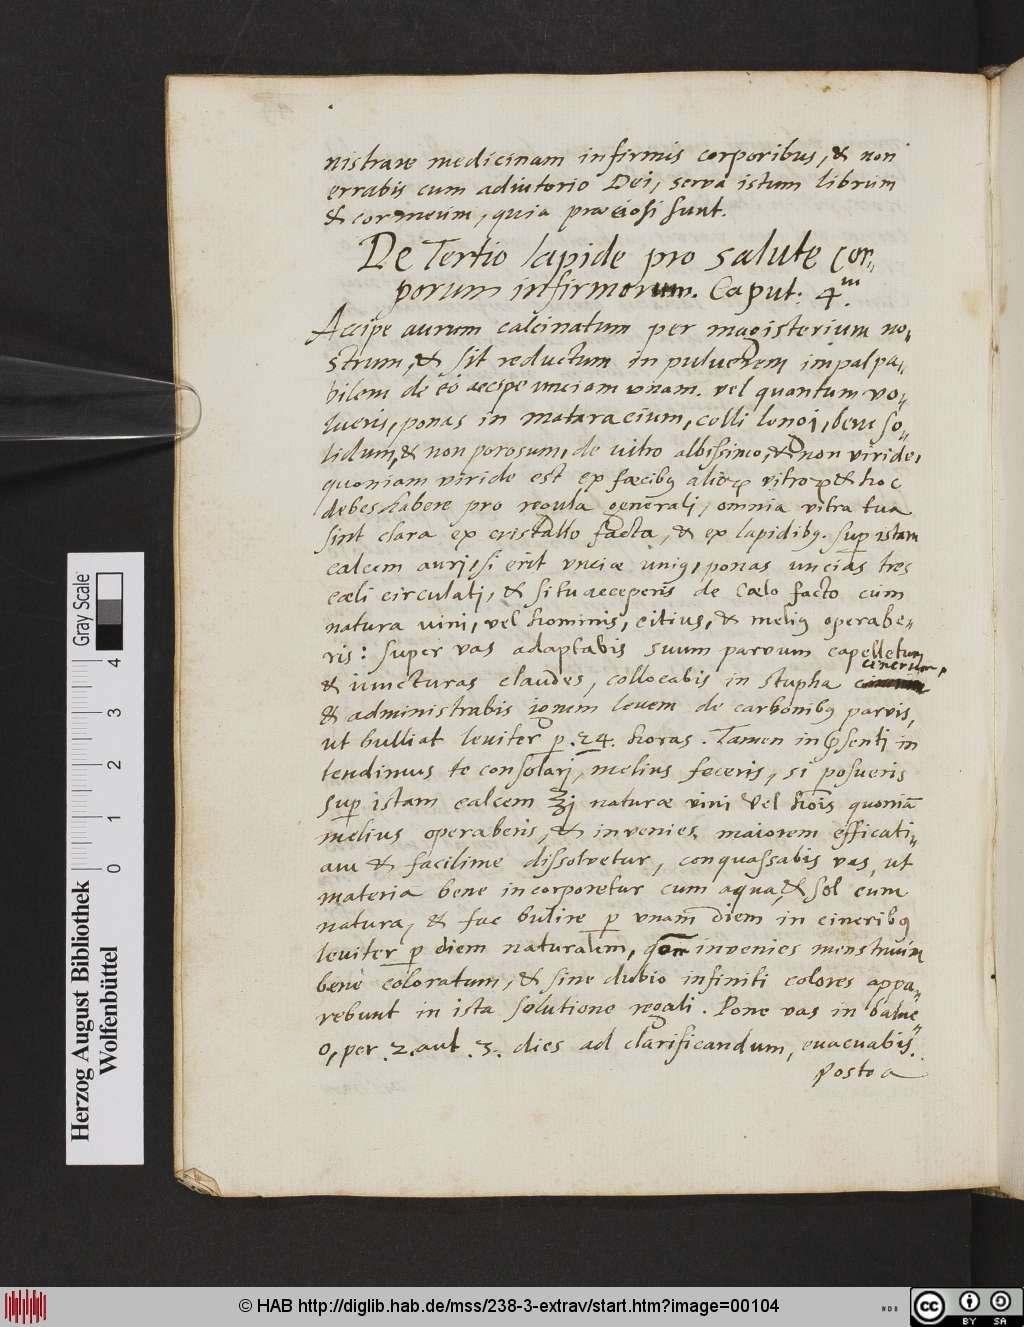 nistrare medicinam infirmis corporibus, & non
errabis cum adiutorio Dei, serva istum librum
& cor meum, quia præciosi sunt.
De Tertio lapide pro salute cor-
porum infirmorum. Caput. 4.m
Accipe aurum calcinatum per magisterium no-
strum, & sit reductum in pulverem impalpa-
bilem de eo accipe unciam unam. vel quantum vo-
lueris, ponas in mataracium, colli longi, bene so-
lidum, & non porosum, de vitro albissimo, & non viride,
quoniam viride est ex fæcibus alioꝝ vitroꝝ & hoc
debes habere pro regula generali, omnia vitra tua
sint clara ex cristallo facta, & ex lapidibꝰ. suꝑ istam
calcem auri, si erit unciæ uniꝰ, ponas uncias tres
cæli circulati, & si tu acceperis de Cælo facto cum
natura vini, vel hominis, citius, & meliꝰ operabe-
ris: super vas adaptabis suum parvum capelletum
& iuncturas claudes, collocabis in stupha cinerum,
& administrabis ignem levem de carbonibꝰ parvis,
ut bulliat leviter ꝑ .24. horas. Tamen in p̃senti in
tendimus te consolari, melius feceris, si posueris
suꝑ istam calcem ℥j naturæ vini vel hois quoniã
melius operaberis, & invenies maiorem efficati-
am & facilime dissolvetur, conquassabis vas, ut
materia bene incorporetur cum aqua, & sol cum
natura, & fac bulire ꝑ unam diem in cineribꝰ
leviter ꝑ diem naturalem, invenies menstruum
bene coloratum, & sine dubio infiniti colores appa-
rebunt in ista solutione regali. Pone vas in balne-
o, per .2. aut .3. dies ad clarificandum, evacuabis.
postea
Herzog August Bibliothek
Wolfenbüttel
Gray Scale
0 1 2 3 4
© HAB http://diglib.hab.de/mss/238-3-extrav/start.htm?image=00104
cc BY SA